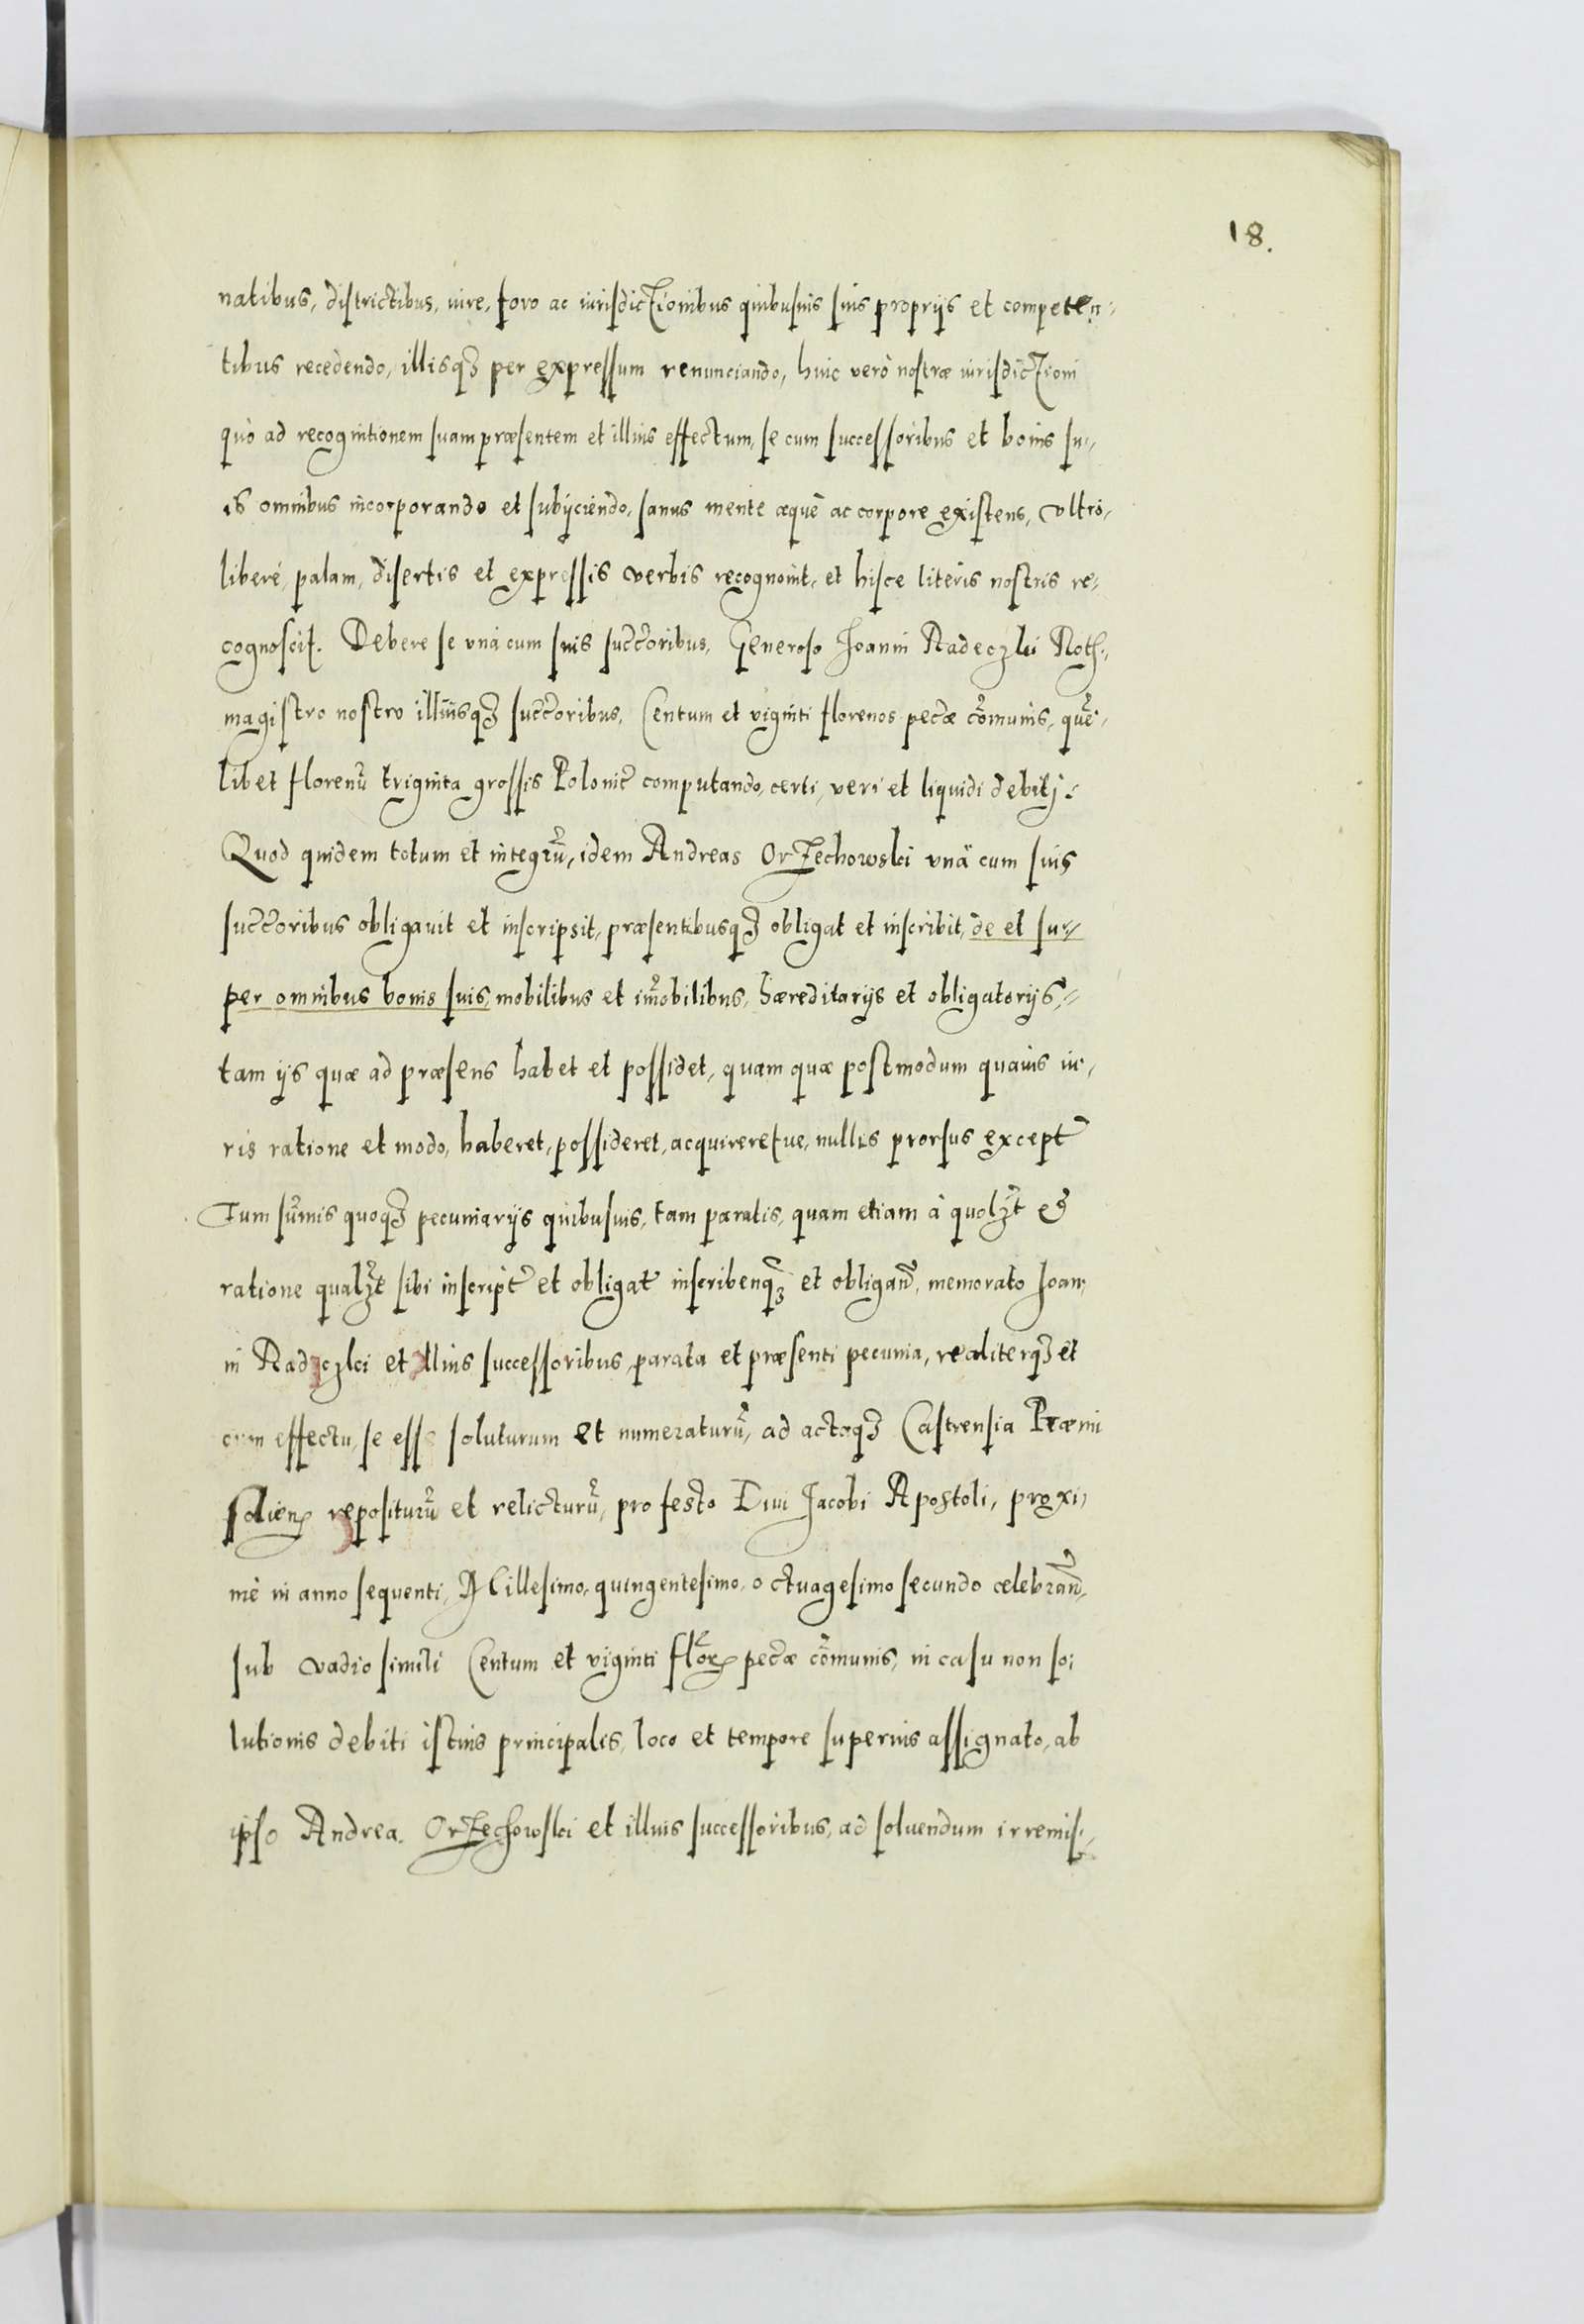 18.
natibus, districtibus, iure, foro ac iurisdictionibus quibusuis suis proprijs et competen-
tibus recedendo, illisq3 per expressum renunciando, huic verò nostræ iurisdictioni
quò ad recognitionem suam præsentem et illius effectum, se cum successoribus et bonis su-
is omnibus incorporando et subijciendo, sanus mente æquè ac corpore existens, vltrò,
liberè, palam, disertis et expressis verbis recognouit, et hisce literis nostris re-
cognoscit. Debere se vnà cum suis succ̃oribus, Generoso Joanni Radeczki Roth-
magistro nostro illiusq3 succ̃oribus, Centum et viginti florenos pecc̃æ cõmunis, quẽ-
libet florenũ triginta grossis Polonic̃ computando, certi, veri et liquidi debitj:
Quod quidem totum et integrũ, idem Andreas Orzechowski vnà cum suis
succ̃oribus obligauit et inscripsit, præsentibusq3 obligat et inscribit, de et su-
per omnibus bonis suis, mobilibus et im̃obilibus, hæreditarijs et obligatorijs,
tam ijs quæ ad præsens habet et possidet, quam quæ postmodum quauis iu-
ris ratione et modo, haberet, possideret, acquireretue, nullis prorsus except̃
Tum sum̃is quoq3 pecuniarijs quibusuis, tam paratis, quam etiam à quolz̃t ex
ratione qualz̃t sibi inscript̃ et obligat̃ inscribenq3 et obligañ, memorato Joan-
ni Radeczki et illius successoribus parata et præsenti pecunia, realiterq3 et
cum effectu, se esse soluturum et numeraturũ, ad actaq3 Castrensia Præmi
sliens repositurũ et relicturũ, pro festo Diui Jacobi Apostoli, proxi-
mè in anno sequenti, Millesimo, quingentesimo, octuagesimo secundo celebrañ,
sub vadio simili Centum et viginti flor̃ pec̃æ cõmunis, in casu non so-
lutionis debiti istius principalis, loco et tempore superius assignato, ab
ipso Andrea Orzechowski et illius successoribus, ad soluendum irremisi-